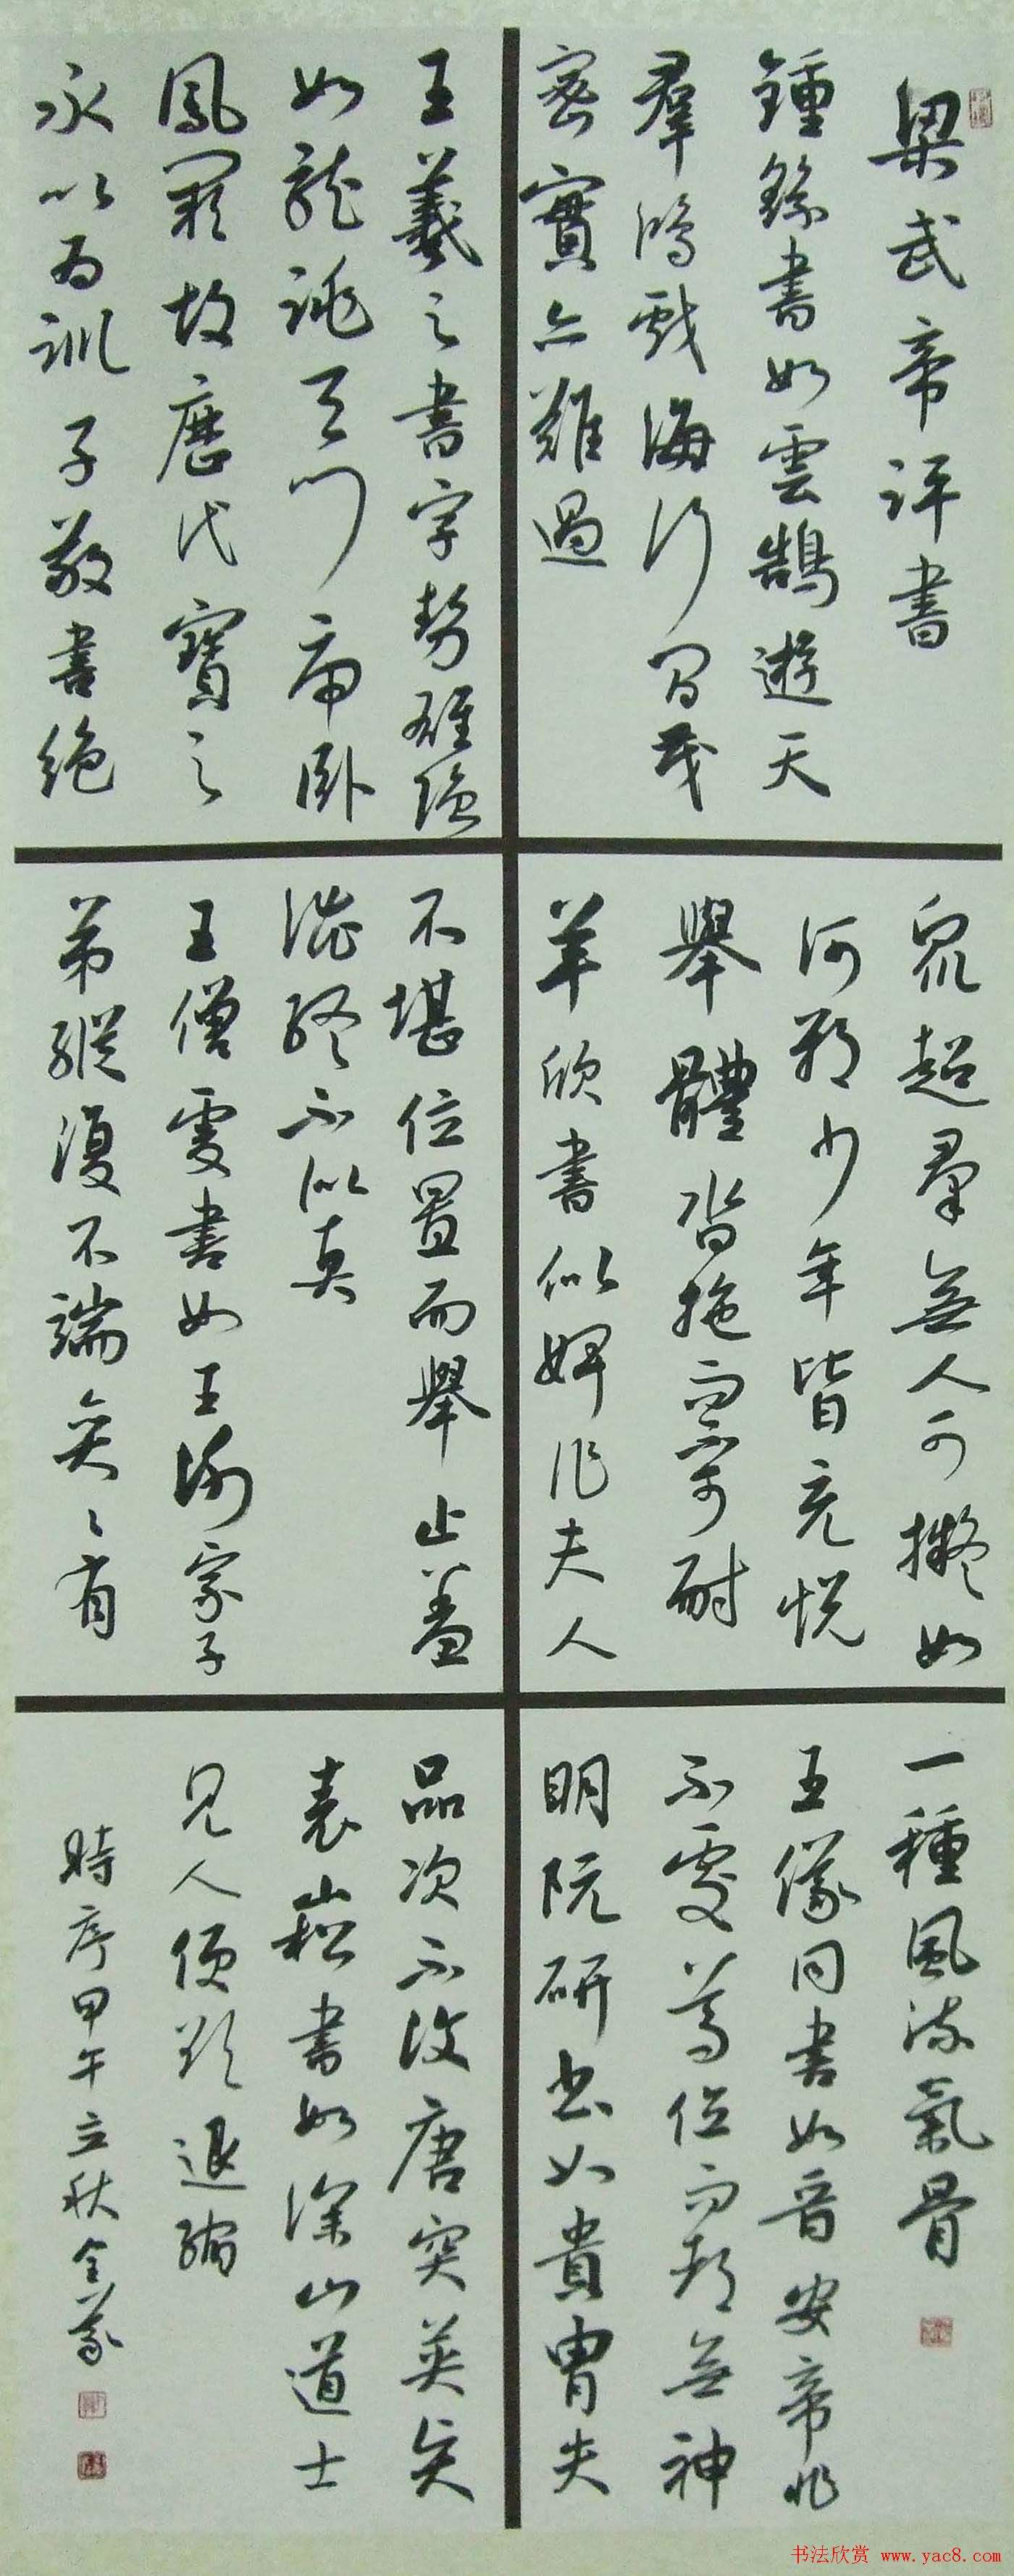 梁武帝評書
鍾繇書如雲鵠遊天
羣鴻戲海行間茂
密實亦難過
王羲之書字勢雄強
如龍跳天門虎卧
鳳闕故歷代寶之
永以為訓子敬書絕
衆超羣無人可擬如
河朔少年皆充悅
舉體沓拖而不可耐
羊欣書似婢作夫人
不堪位置而舉止羞
澀終不似真
王僧虔書如王謝家子
弟縱復不端奕〻有
一種風流氣骨
王儀同書如晉安帝非
不處尊位而都無神
明阮研書如貴胄失
品次不復唐突英矣
袁崧書如深山道士
見人便欲退縮
時序甲午立秋
书法欣赏 www.yac8.com